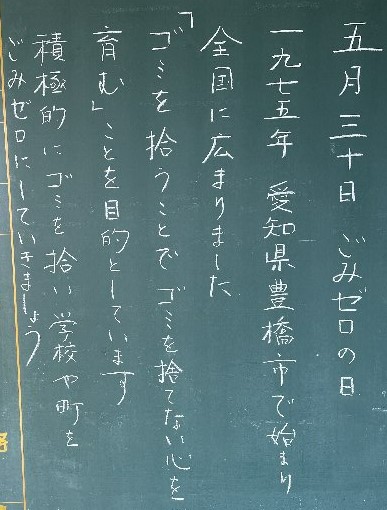 五月三十日 ごみゼロの日
一九七五年 愛知県豊橋市で始まり
全国に広まりました
「ゴミを拾うことでゴミを捨てない心を
育む」ことを目的としています
積極的にゴミを拾い学校や町を
ごみゼロにしていきましょう